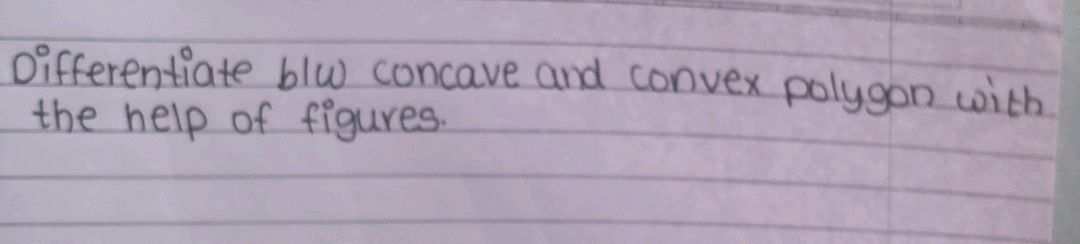 Differentiate b/w concave and convex polygon with
the help of figures.